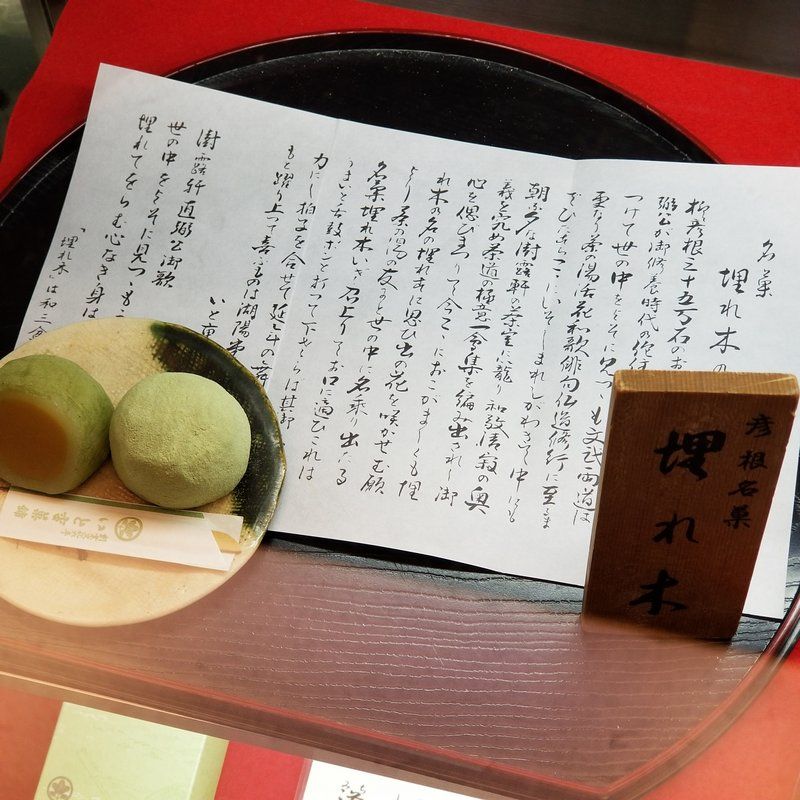 名菓
埋れ木の
彦根三十五万石のお
弼公が御修養時代の
つけて世の中をよそに見つゝも文武両道は
更なり茶の湯活花和歌俳句仏道修行に至るま
でひたすらこゝにいそしまれしがわきて中にも
朝な夕な澍露軒の茶室に籠り和敬清寂の奥
義を究め茶道の極意一会集を編み出されし御
心を偲びまつりて今こゝにおこがましくも埋
れ木の名の埋れ木に思ひ出の花を咲かせむ願
より茶の湯の友よと世の中に名乗り出たる
名菓埋れ木いざ召上りてお口に適ひこれは
うまいと舌鼓ポンと打つて下さらば其
力にし拍子を合せて延年の舞
もと躍り上つて喜ぶものは湖陽
いと
澍露軒 直弼公御歌
世の中をよそに見つゝも
埋れてをらむ心なき身は
「埋れ木」は和三
彦根名菓
埋れ木
いと重菓舗